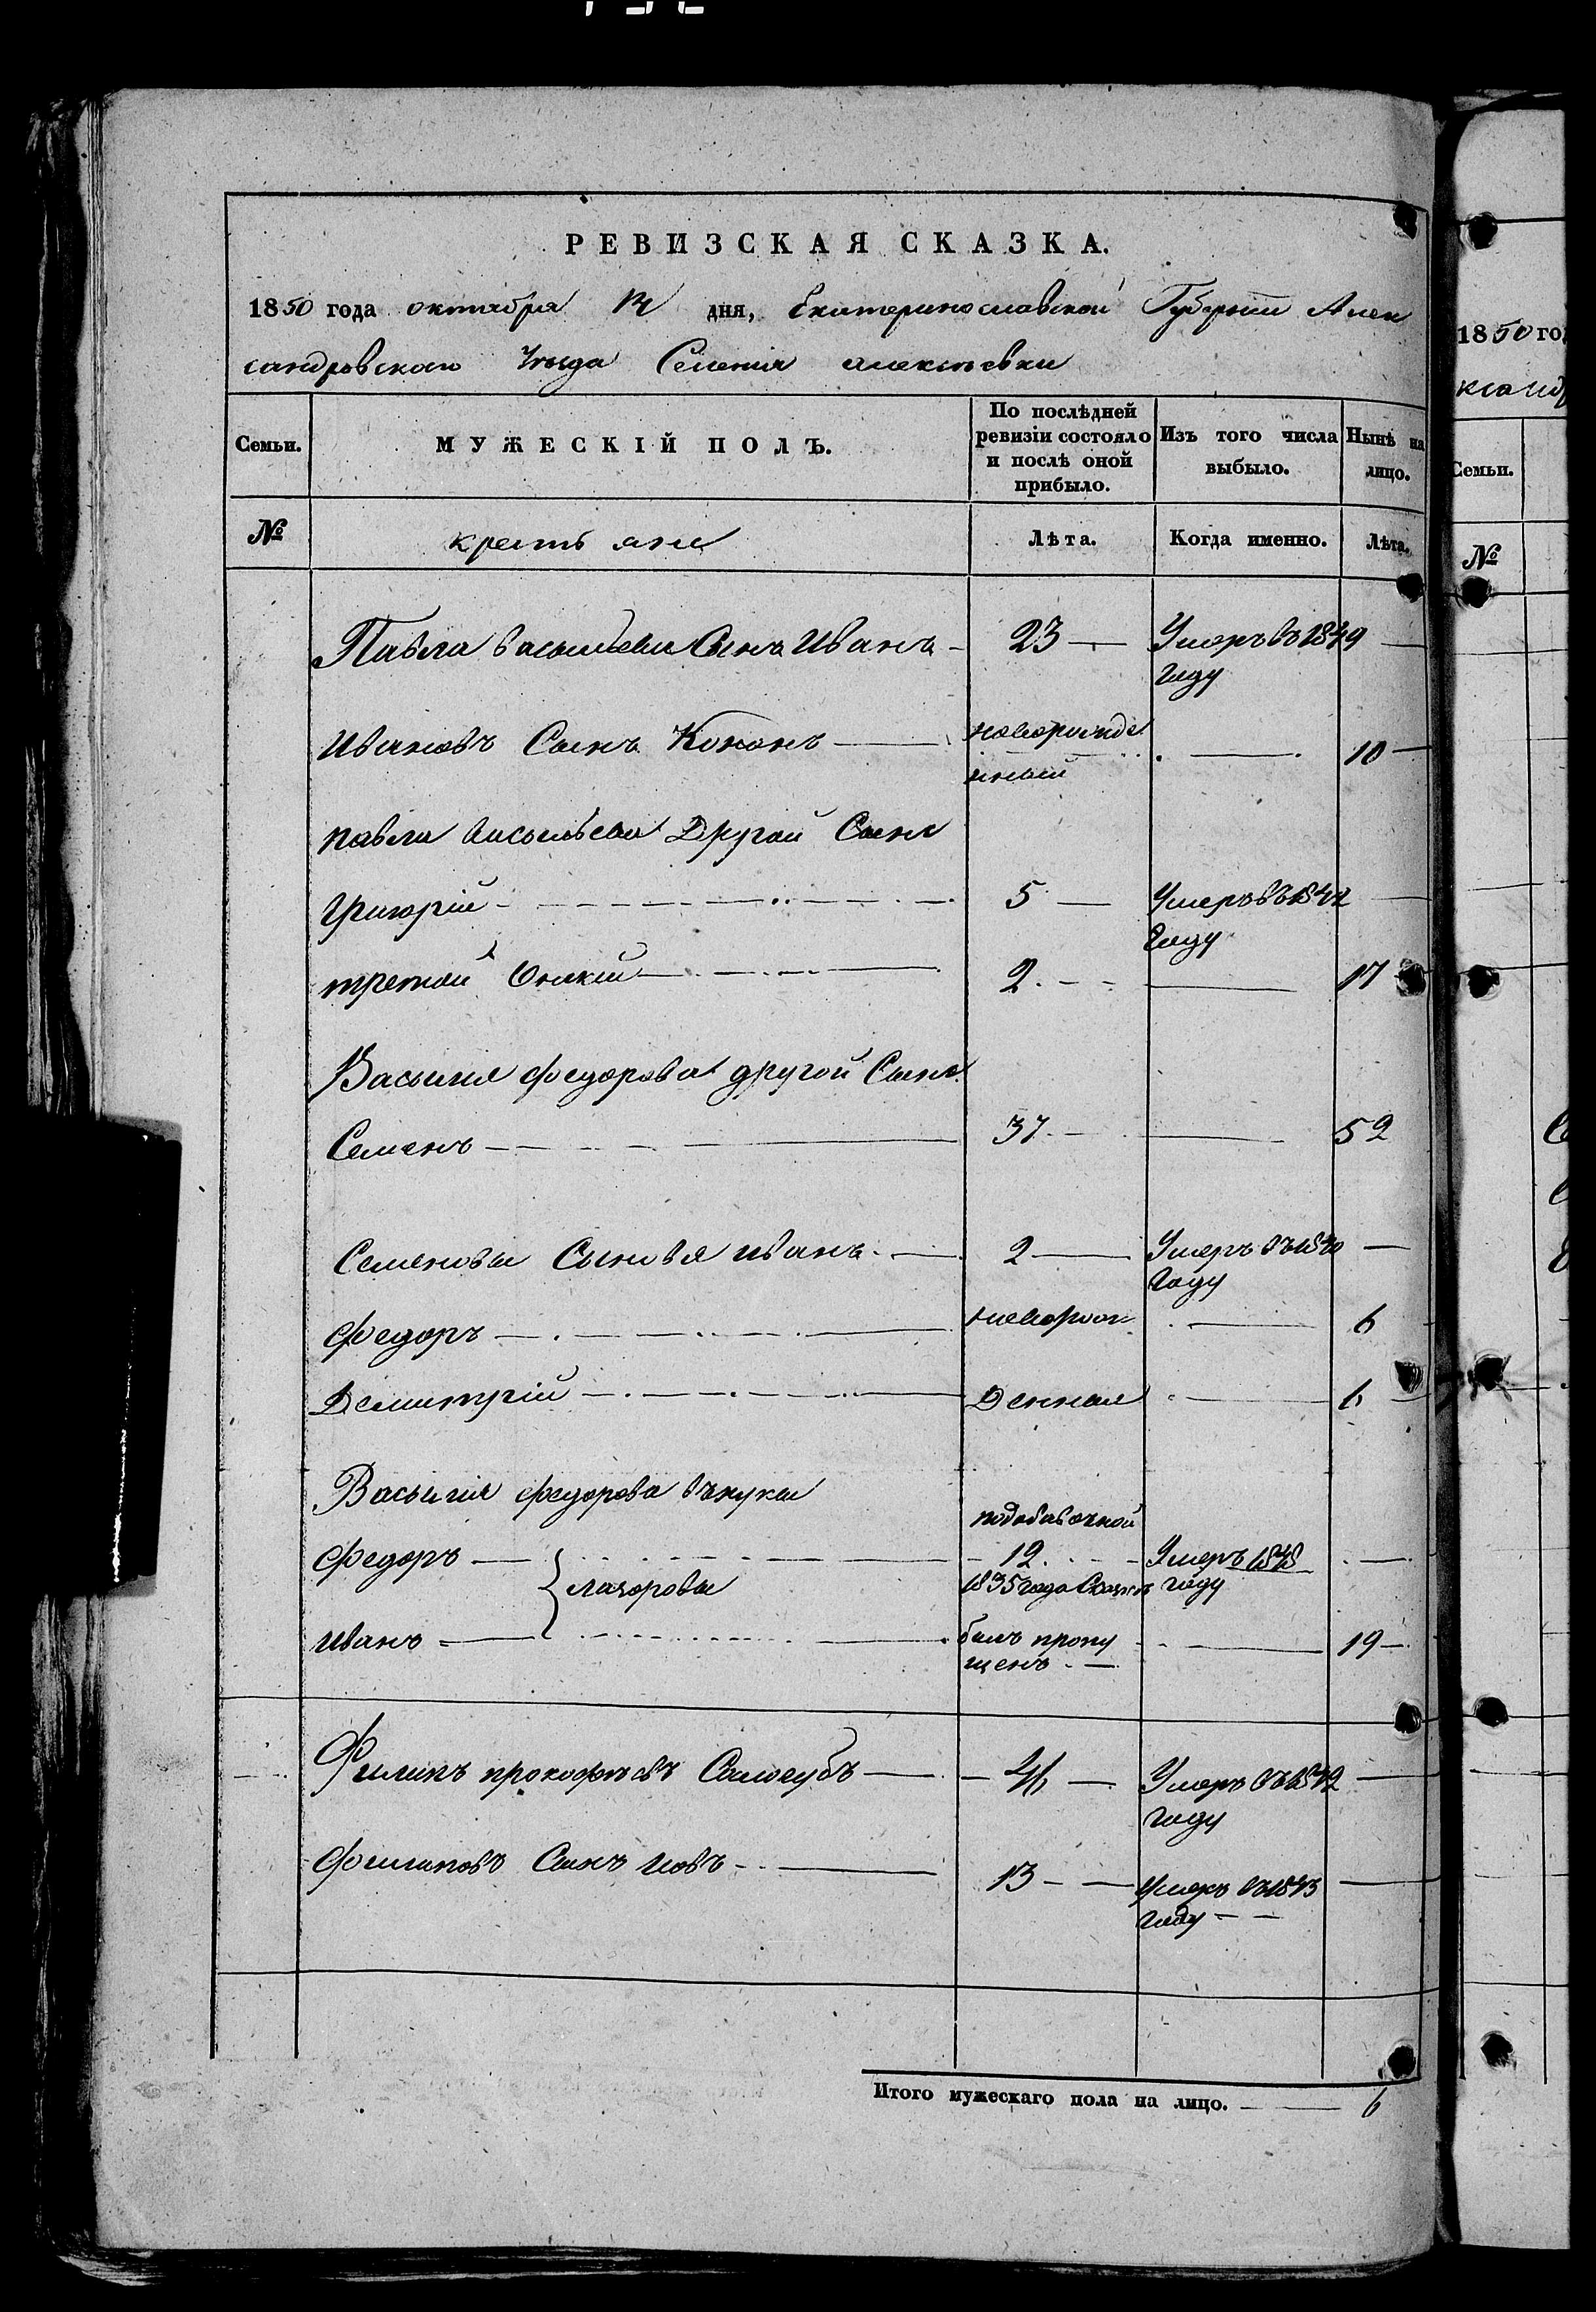 РЕВИЗСКАЯ СКАЗКА.
1850 года октября дня, Екатеринославской Губернии Алек
сандровскаго Уезда Селенія алексѣевки
Семьи.
МУЖЕСКІЙ ПОЛЪ.
По послѣдней ревизіи состояло и послѣ оной прибыло.
Изъ того числа выбыло.
Нынѣ на лицо.
№
крестьяне
Лѣта.
Когда именно.
Лѣта.
Павла васильева Сынъ Иванъ 23 Умеръ въ 1849
году
Ивановъ Сынъ Кононъ новорожде
нный 10
павла васильева Другой Сынъ
Григорій 5 Умеръ въ 1842
году
третой 2 17
Василия федорова другой Сынъ
Семенъ 37 52
Семеновы Сыновя иванъ 2 Умеръ въ 1840
году
федоръ новорож 6
Демитрій Денные 6
Василия федорова внуки
подобавочной
федоръ 12 Умеръ 1848
лазоровы 1835 года Сказке году
иванъ былъ пропу 19
щенъ
Филипъ прокофьевъ Самогубъ 46 Умеръ въ 1842
году
филиповъ Сынъ иовъ 13 Умеръ въ 1843
году
Итого мужескаго пола на лицо. 6
1850 го
ксанд
Семьи.
№